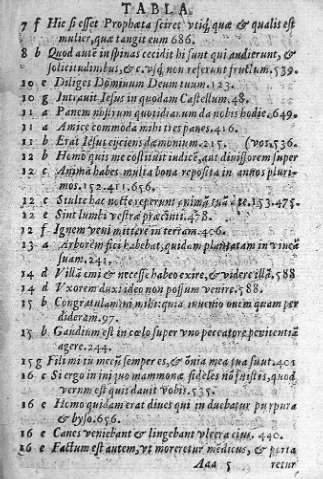 TABLA.
7 f Hic si esset Propheta sciret vtiq; quæ & qualis est
mulier, quæ tangit eum 686.
8 b Quod autē in spinas cecidit hi sunt qui audierunt, &
solicitudinibus, & c. vsq; non referunt fructum. 539.
10 e Diliges Dominum Deum tuum. 123.
10 g Intrauit Iesus in quodam Castellum. 48.
11 a Panem nostrum quotidianum da nobis hodie. 649.
11 a Amice commoda mihi tres panes. 416.
11 b Erat Iesus eyciens dæmonium. 215. (vos. 536.
12 b Homo quis me costituit iudicē, aut diuisorem super
12 c Anima habes multa bona reposita in annos pluri-
mos. 152. 411. 656.
12 c Stulte hac nocte repetunt animā tuā a te. 153. 475.
12 e Sint lumbi vestri præcincti. 478.
12 f Ignem veni mittere in terram. 406.
13 a Arborem fici habebat, quidam plantatam in vinea
suam. 241.
14 d Villā emi & necesse habeo exire, & videre illā. 588
14 d Vxorem duxi ideo non possum venire. 588.
15 b Congratulamini mihi: quia inuenio ouem quam per
dideram. 97.
15 b Gaudium est in cœlo super vno peccatore penitentiā
agere. 244.
15 g Fili mi tu mecū semper es, & ōnia mea tua sunt. 401
16 c Si ergo in iniquo mammona fideles nō fuistis, quod
verum est quis dauit vobis. 535.
16 e Homo quidam erat diues qui induebatur purpura
& byso. 656.
16 e Canes veniebant & lingebant vlcera eius. 440.
16 e Factum est autem, vt moreretur mēdicus, & porta
Aaa 5 retur